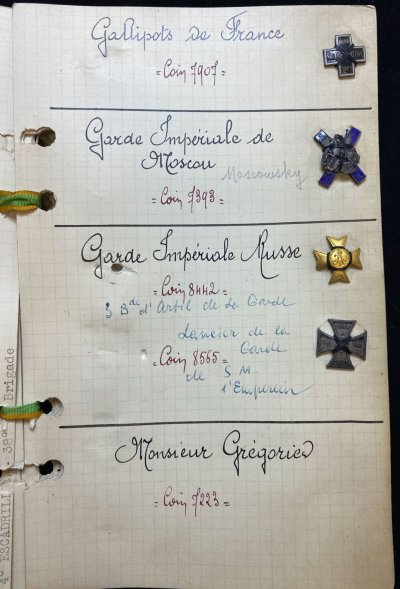 Gallipots de France
= Coin 7907 =
Garde Impériale de
Moscou
Moscowsky
= Coin 7393 =
Garde Impériale Russe
= Coin 8442 =
3 Bde d'Artil de La Garde
Lancier de la
= Coin 8565 = Garde
de S M
l'Empereur
Monsieur Grégorier
= Coin 7223 =
4º ESCADRILL 38º Brigade